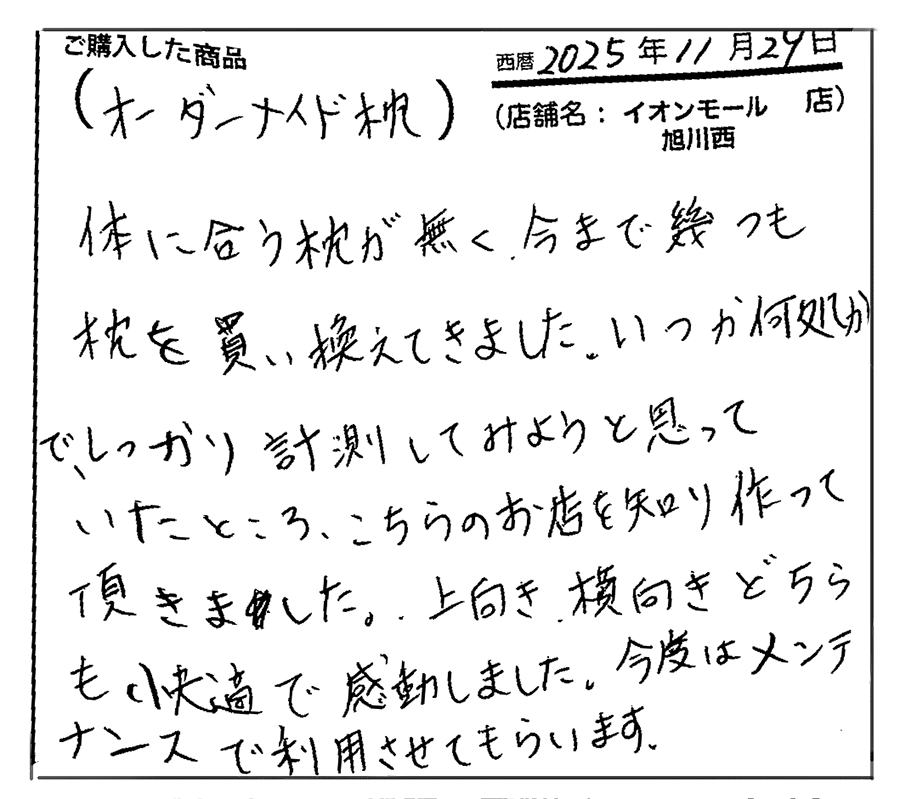 ご購入した商品
西暦 2025年11月29日
(オーダーメイド枕)
(店舗名：イオンモール 店)
旭川西
体に合う枕が無く、今まで幾つも
枕を買い換えてきました。いつか何処か
で、しっかり計測してみようと思って
いたところ、こちらのお店を知り作って
頂きました。上向き、横向きどちら
も快適で感動しました。今度はメンテ
ナンスで利用させてもらいます。